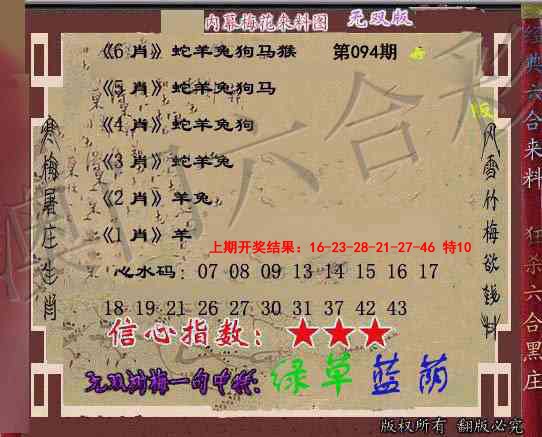 内幕梅花来料图 无双版
《6 肖》蛇羊兔狗马猴 第094期
《5 肖》蛇羊兔狗马
《4 肖》蛇羊兔狗
《3 肖》蛇羊兔
《2 肖》羊兔
《1 肖》羊
上期开奖结果：16-23-28-21-27-46 特10
心水码： 07 08 09 13 14 15 16 17
18 19 21 26 27 30 31 37 42 43
信心指数：★★★
无双刘梅一句中特：绿草蓝荫
寒梅屠庄生肖
风雪竹梅欲钱料
经典六合来料 狂杀六合黑庄
版权所有 翻版必究
澳门六合彩